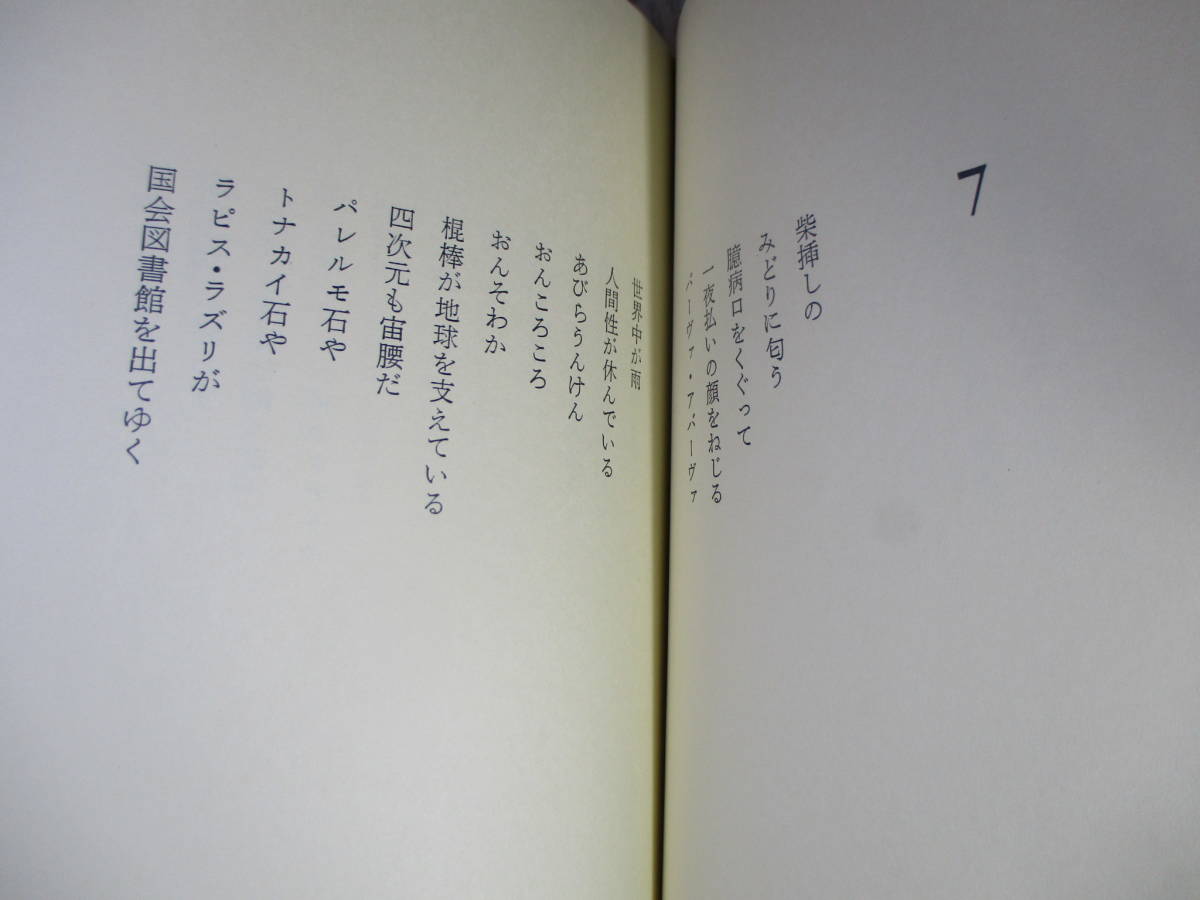 7
柴挿しの
みどりに匂う
臆病口をくぐって
一夜払いの顔をねじる
バーヴァ・アバーヴァ
世界中が雨
人間性が休んでいる
あびらうんけん
おんころころ
おんそわか
棍棒が地球を支えている
四次元も宙腰だ
パレルモ石や
トナカイ石や
ラピス・ラズリが
国会図書館を出てゆく